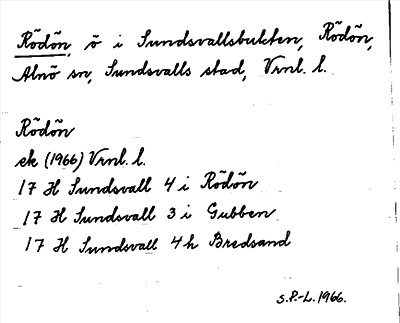 Rödön, ö i Sundsvallsbukten, Rödön,
Alnö sn, Sundsvalls stad, Vrnl. l.
Rödön
ek (1966) Vrnl. l.
17 H Sundsvall 4 i Rödön
17 H Sundsvall 3 i Gubben
17 H Sundsvall 4 h Bredsand
S.P.-L. 1966.